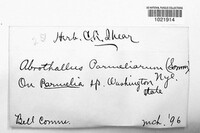 1021914
Herb. C. L. Shear
Abrothallus Parmeliarum (Somm.) Nyl.
On Parmelia sp. Washington
state
Bell comm. Mch. '96